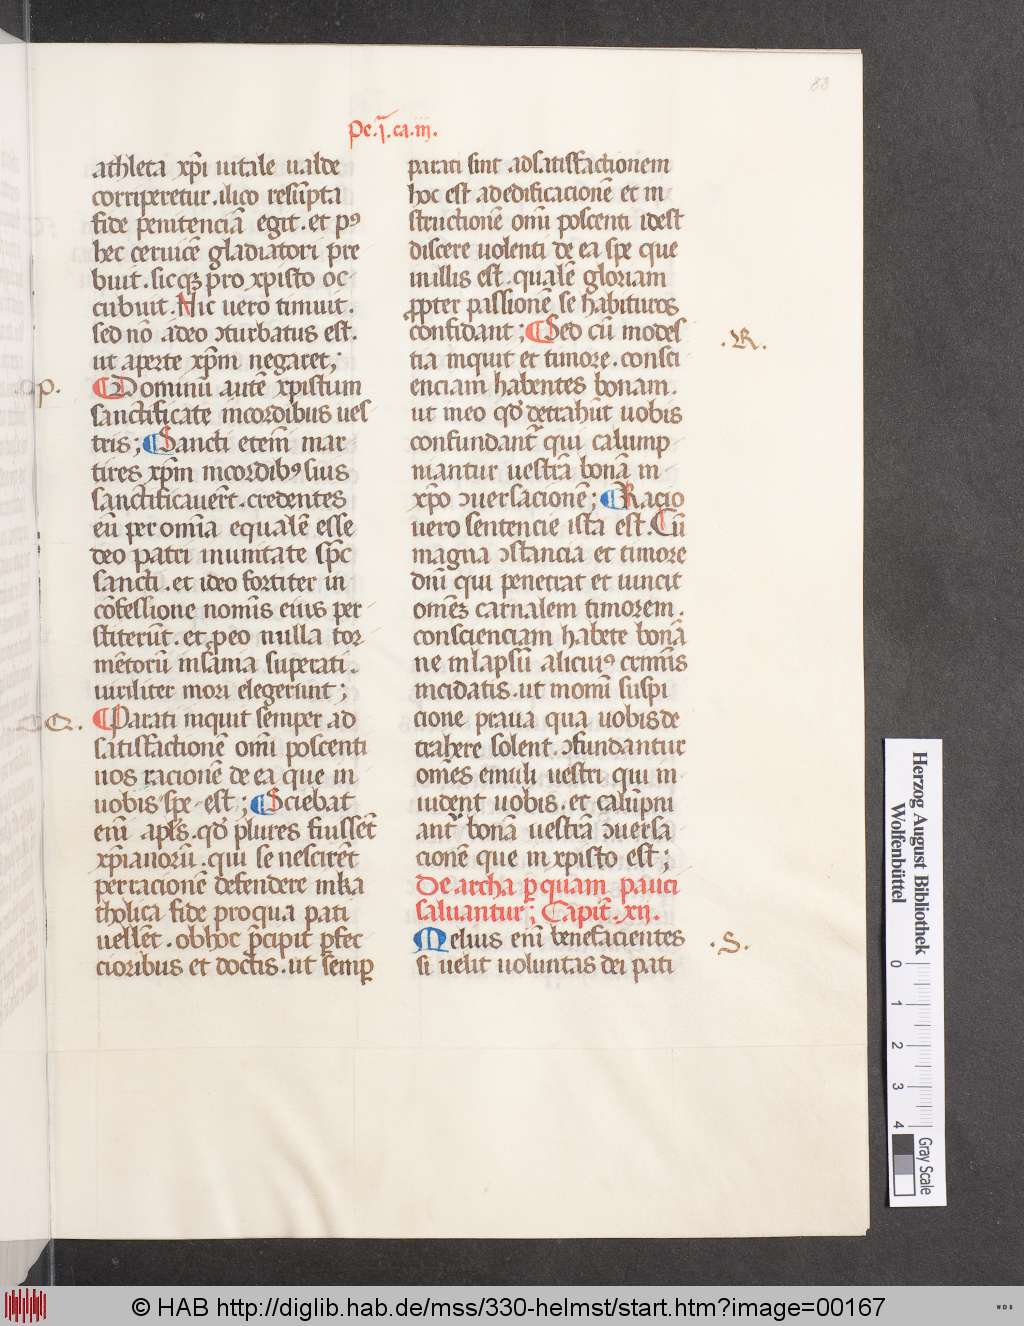 83
Pe.i.ca.iii.
athleta xp̄i uitale ualde
corriperetur.ilico resūpta
fide penitenciā egit.et pꝰ
hec ceruicē gladiatori pre
buit.sicqꝫ pro xpisto oc
cubuit.Hic uero timuit.
sed nō adeo ↄturbatus est.
ut aperte xp̄m negaret;
Dominū autē xpistum
sanctificate incordibus ues
tris; Sancti eteīm mar
tires xp̄m incordibꝰ suis
sanctificauer̄t.credentes
eū per om̄ia equalē esse
deo patri inunitate sp̄c
sancti.et ideo fortiter in
cōfessione nomīs eius per
stiterūt.et ꝓeo nulla tor
mētorū insania superati.
uiriliter mori elegerunt;
Parati inquit semper ad
satisfactionē omī poscenti
uos racionē de ea que in
uobis spe est; Sciebat
enī apl̄s.qd̄ plures fuissēt
xp̄ianorū.qui se nescirēt
perracionē defendere inka
tholica fide proqua pati
uellēt.obhoc p̄cipit ꝑfec
cioribus et doctis.ut semꝑ
parati sint adsatisfactionem
hoc est adedificacionē et in
structionē omī poscenti idest
discere uolenti de ea spe que
inillis est.qualē gloriam
ꝓpter passionē se habituros
confidant; Sed cū modes
tia inquit et timore.consci
enciam habentes bonam.
ut ineo qd̄ detrahūt uobis
confundant̄ qui calump
niantur uestrā bonā in
xp̄o ↄuersacionē; Racio
uero sentencie ista est.Cū
magna ↄstancia et timore
dn̄i qui penetrat et uincit
omēꝫ carnalem timorem.
conscienciam habete bonā
ne inlapsū alicuiꝰ crimīs
incidatis.ut inomī suspi
cione praua qua uobisde
trahere solent.ↄfundantur
omēs emuli uestri qui in
uident uobis.et calūpni
ant̄ bonā uestrā ↄuersa
cionē que in xpisto est;
De archa ꝑquam pauci
saluantur; Capit̄.xii.
Melius enī benefacientes
si uelit uoluntas dei pati
.p.
.Q.
.R.
.S.
Herzog August Bibliothek
Wolfenbüttel
0
1
2
3
4
Gray Scale
© HAB http://diglib.hab.de/mss/330-helmst/start.htm?image=00167